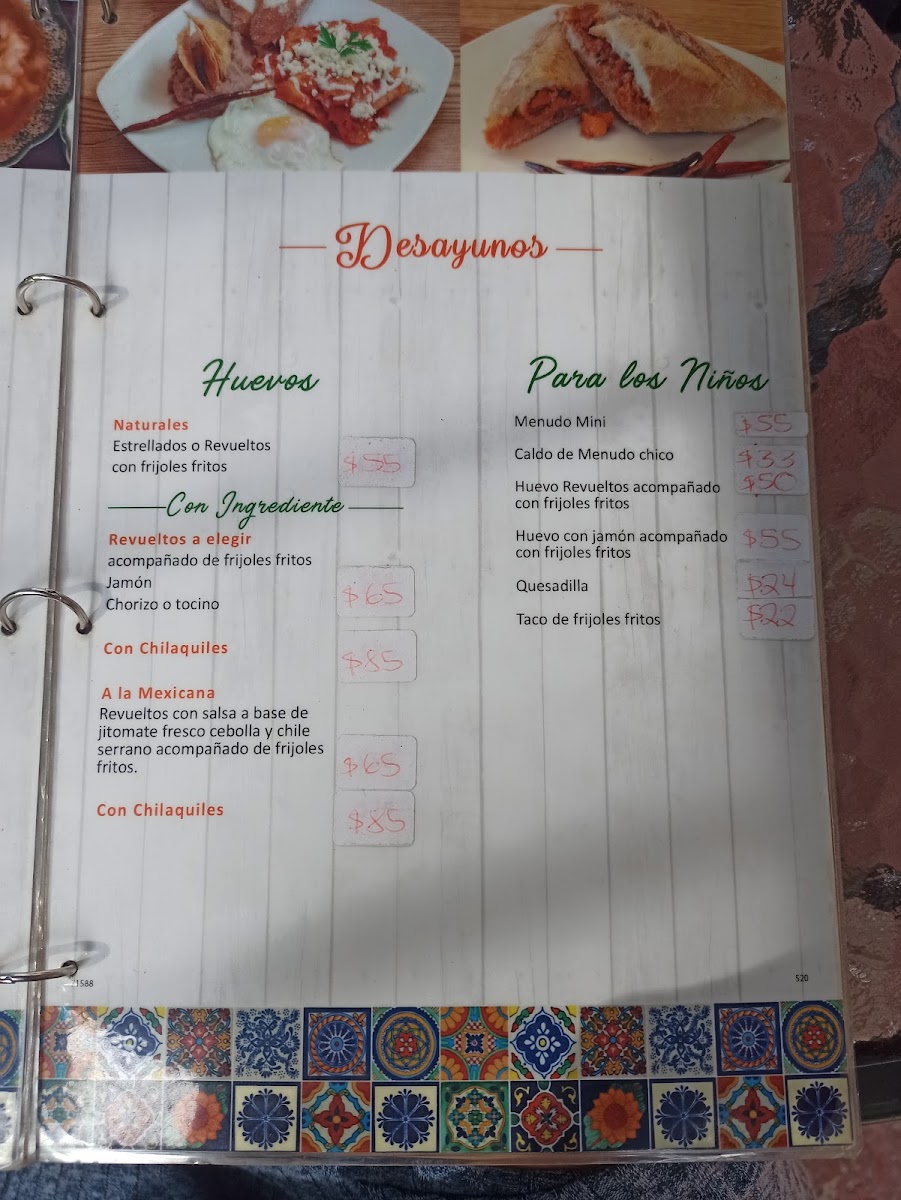 Desayunos
Huevos
Naturales
Estrellados o Revueltos
con frijoles fritos
$55
Con Ingrediente
Revueltos a elegir
acompañado de frijoles fritos
Jamón
Chorizo o tocino
$65
Con Chilaquiles
$85
A la Mexicana
Revueltos con salsa a base de
jitomate fresco cebolla y chile
serrano acompañado de frijoles
fritos.
$65
Con Chilaquiles
$85
Para los Niños
Menudo Mini
$55
Caldo de Menudo chico
$33
Huevo Revueltos acompañado
con frijoles fritos
$50
Huevo con jamón acompañado
con frijoles fritos
$55
Quesadilla
$24
Taco de frijoles fritos
$22
520